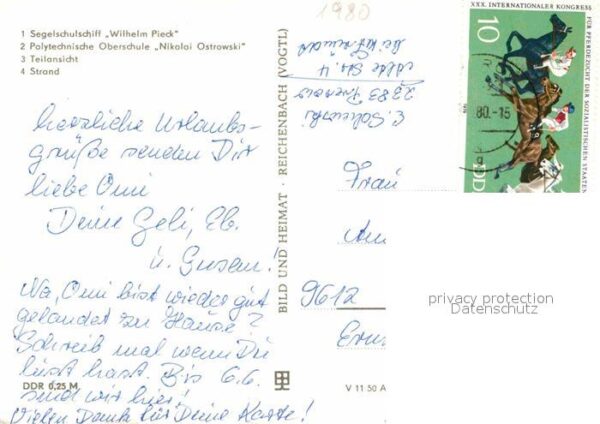 1 Segelschulschiff „Wilhelm Pieck"
2 Polytechnische Oberschule „Nikolai Ostrowski"
3 Teilansicht
4 Strand
herzliche Urlaubs-
grüße senden Dir
liebe Omi
Deine Geli, Eb.
u. Susan!
Na, Omi bist wieder gut
gelandet zu Hause?
Schreib mal wenn Du
lust hast. Bis 6.6.
sind wir hier!
Vielen Dank für Deine Karte!
DDR 0,25 M
BILD UND HEIMAT · REICHENBACH (VOGTL)
V 11 50 A
1980
2383 Prerow
Frau
9612
XXX. INTERNATIONALER KONGRESS
FÜR PFERDEZUCHT DER SOZIALISTISCHEN STAATEN
10
DDR
80.-15
privacy protection
Datenschutz